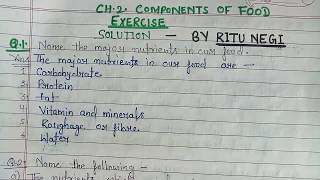 CH.2. COMPONENTS OF FOOD
EXERCISE
SOLUTION – BY RITU NEGI
Q.1. Name the major nutrients in our food.
Ans The major nutrients in our food are -
1 Carbohydrate
2 Protein
3 Fat
4 Vitamin and minerals
5 Roughage or fibre
6 Water
Q.2. Name the following -
a) The nutrients which